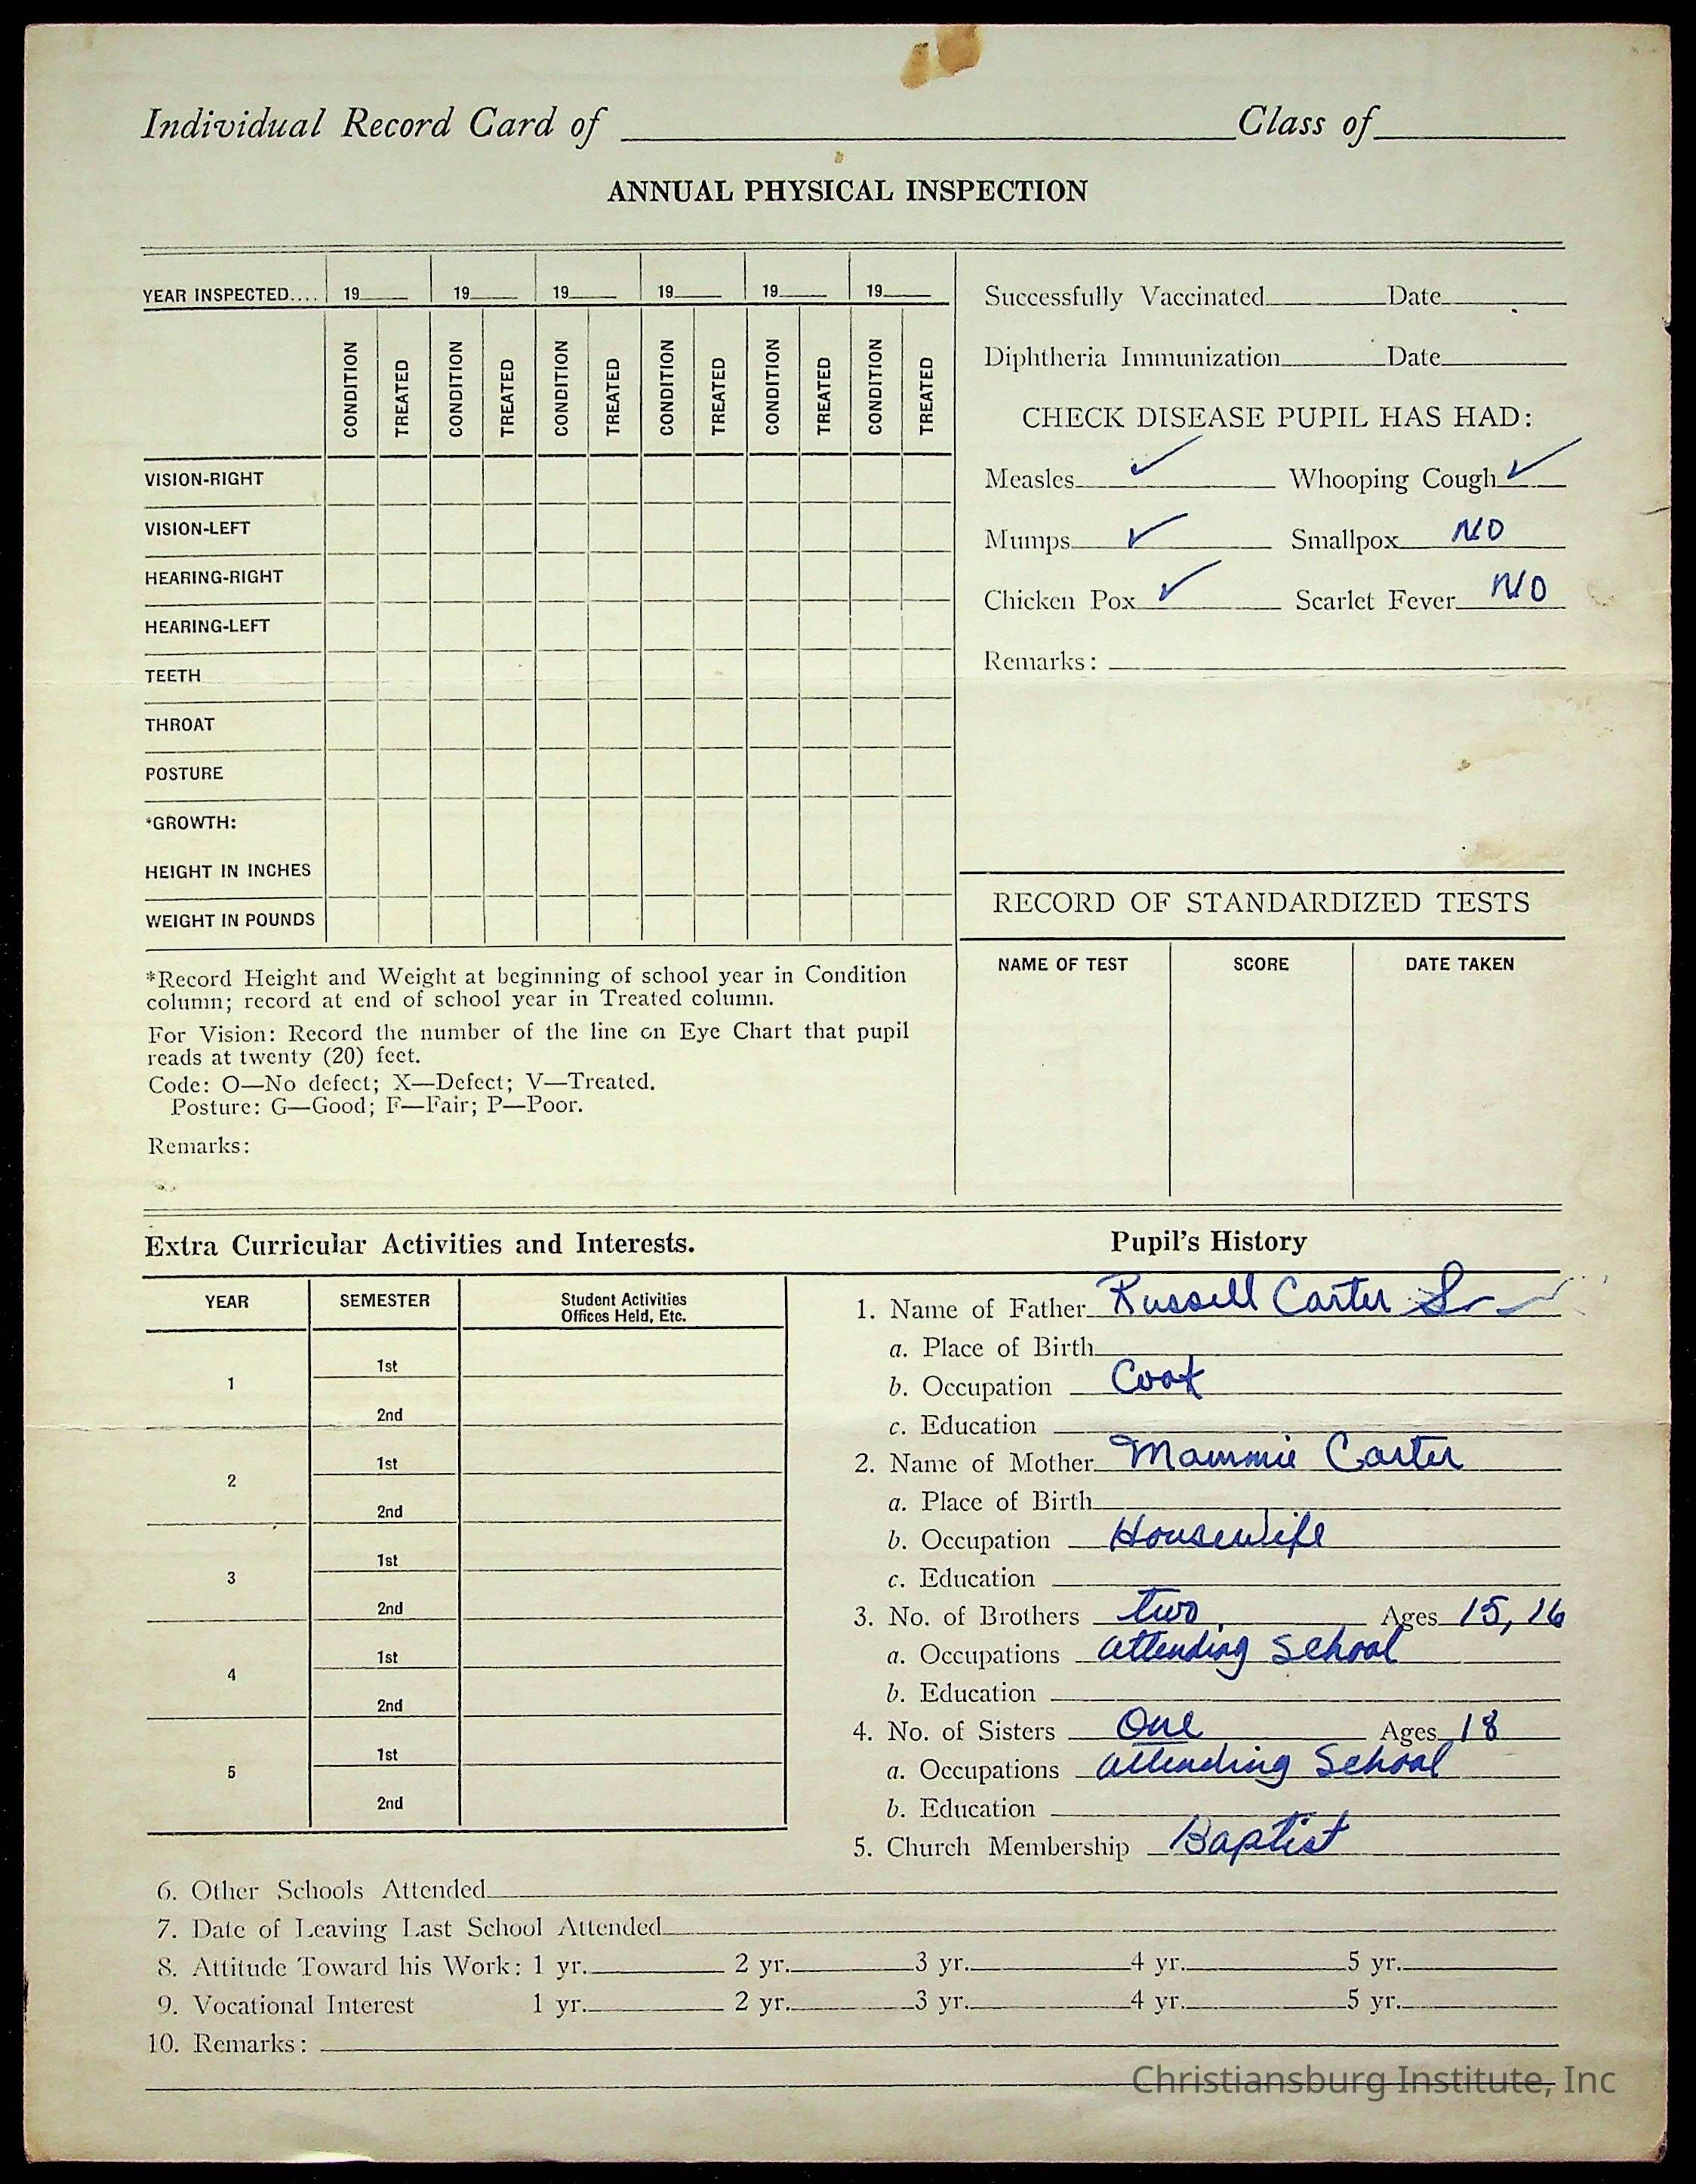 Individual Record Card of ____ Class of ____
ANNUAL PHYSICAL INSPECTION
YEAR INSPECTED.... 19__ 19__ 19__ 19__ 19__ 19__
CONDITION TREATED CONDITION TREATED CONDITION TREATED CONDITION TREATED CONDITION TREATED CONDITION TREATED
VISION-RIGHT
VISION-LEFT
HEARING-RIGHT
HEARING-LEFT
TEETH
THROAT
POSTURE
*GROWTH:
HEIGHT IN INCHES
WEIGHT IN POUNDS
*Record Height and Weight at beginning of school year in Condition
column; record at end of school year in Treated column.
For Vision: Record the number of the line on Eye Chart that pupil
reads at twenty (20) feet.
Code: O—No defect; X—Defect; V—Treated.
Posture: G—Good; F—Fair; P—Poor.
Remarks:
Successfully Vaccinated____Date____
Diphtheria Immunization____Date____
CHECK DISEASE PUPIL HAS HAD:
Measles ✓ Whooping Cough ✓
Mumps ✓ Smallpox NO
Chicken Pox ✓ Scarlet Fever NO
Remarks: ____
RECORD OF STANDARDIZED TESTS
NAME OF TEST SCORE DATE TAKEN
Extra Curricular Activities and Interests.
YEAR SEMESTER Student Activities
Offices Held, Etc.
1 1st
2nd
2 1st
2nd
3 1st
2nd
4 1st
2nd
5 1st
2nd
Pupil's History
1. Name of Father Russell Carter Sr
a. Place of Birth
b. Occupation Cook
c. Education
2. Name of Mother Mammie Carter
a. Place of Birth
b. Occupation Housewife
c. Education
3. No. of Brothers two Ages 15, 16
a. Occupations attending school
b. Education
4. No. of Sisters One Ages 18
a. Occupations attending School
b. Education
5. Church Membership Baptist
6. Other Schools Attended
7. Date of Leaving Last School Attended
8. Attitude Toward his Work: 1 yr.____ 2 yr.____ 3 yr.____ 4 yr.____ 5 yr.____
9. Vocational Interest 1 yr.____ 2 yr.____ 3 yr.____ 4 yr.____ 5 yr.____
10. Remarks: ____
Christiansburg Institute, Inc